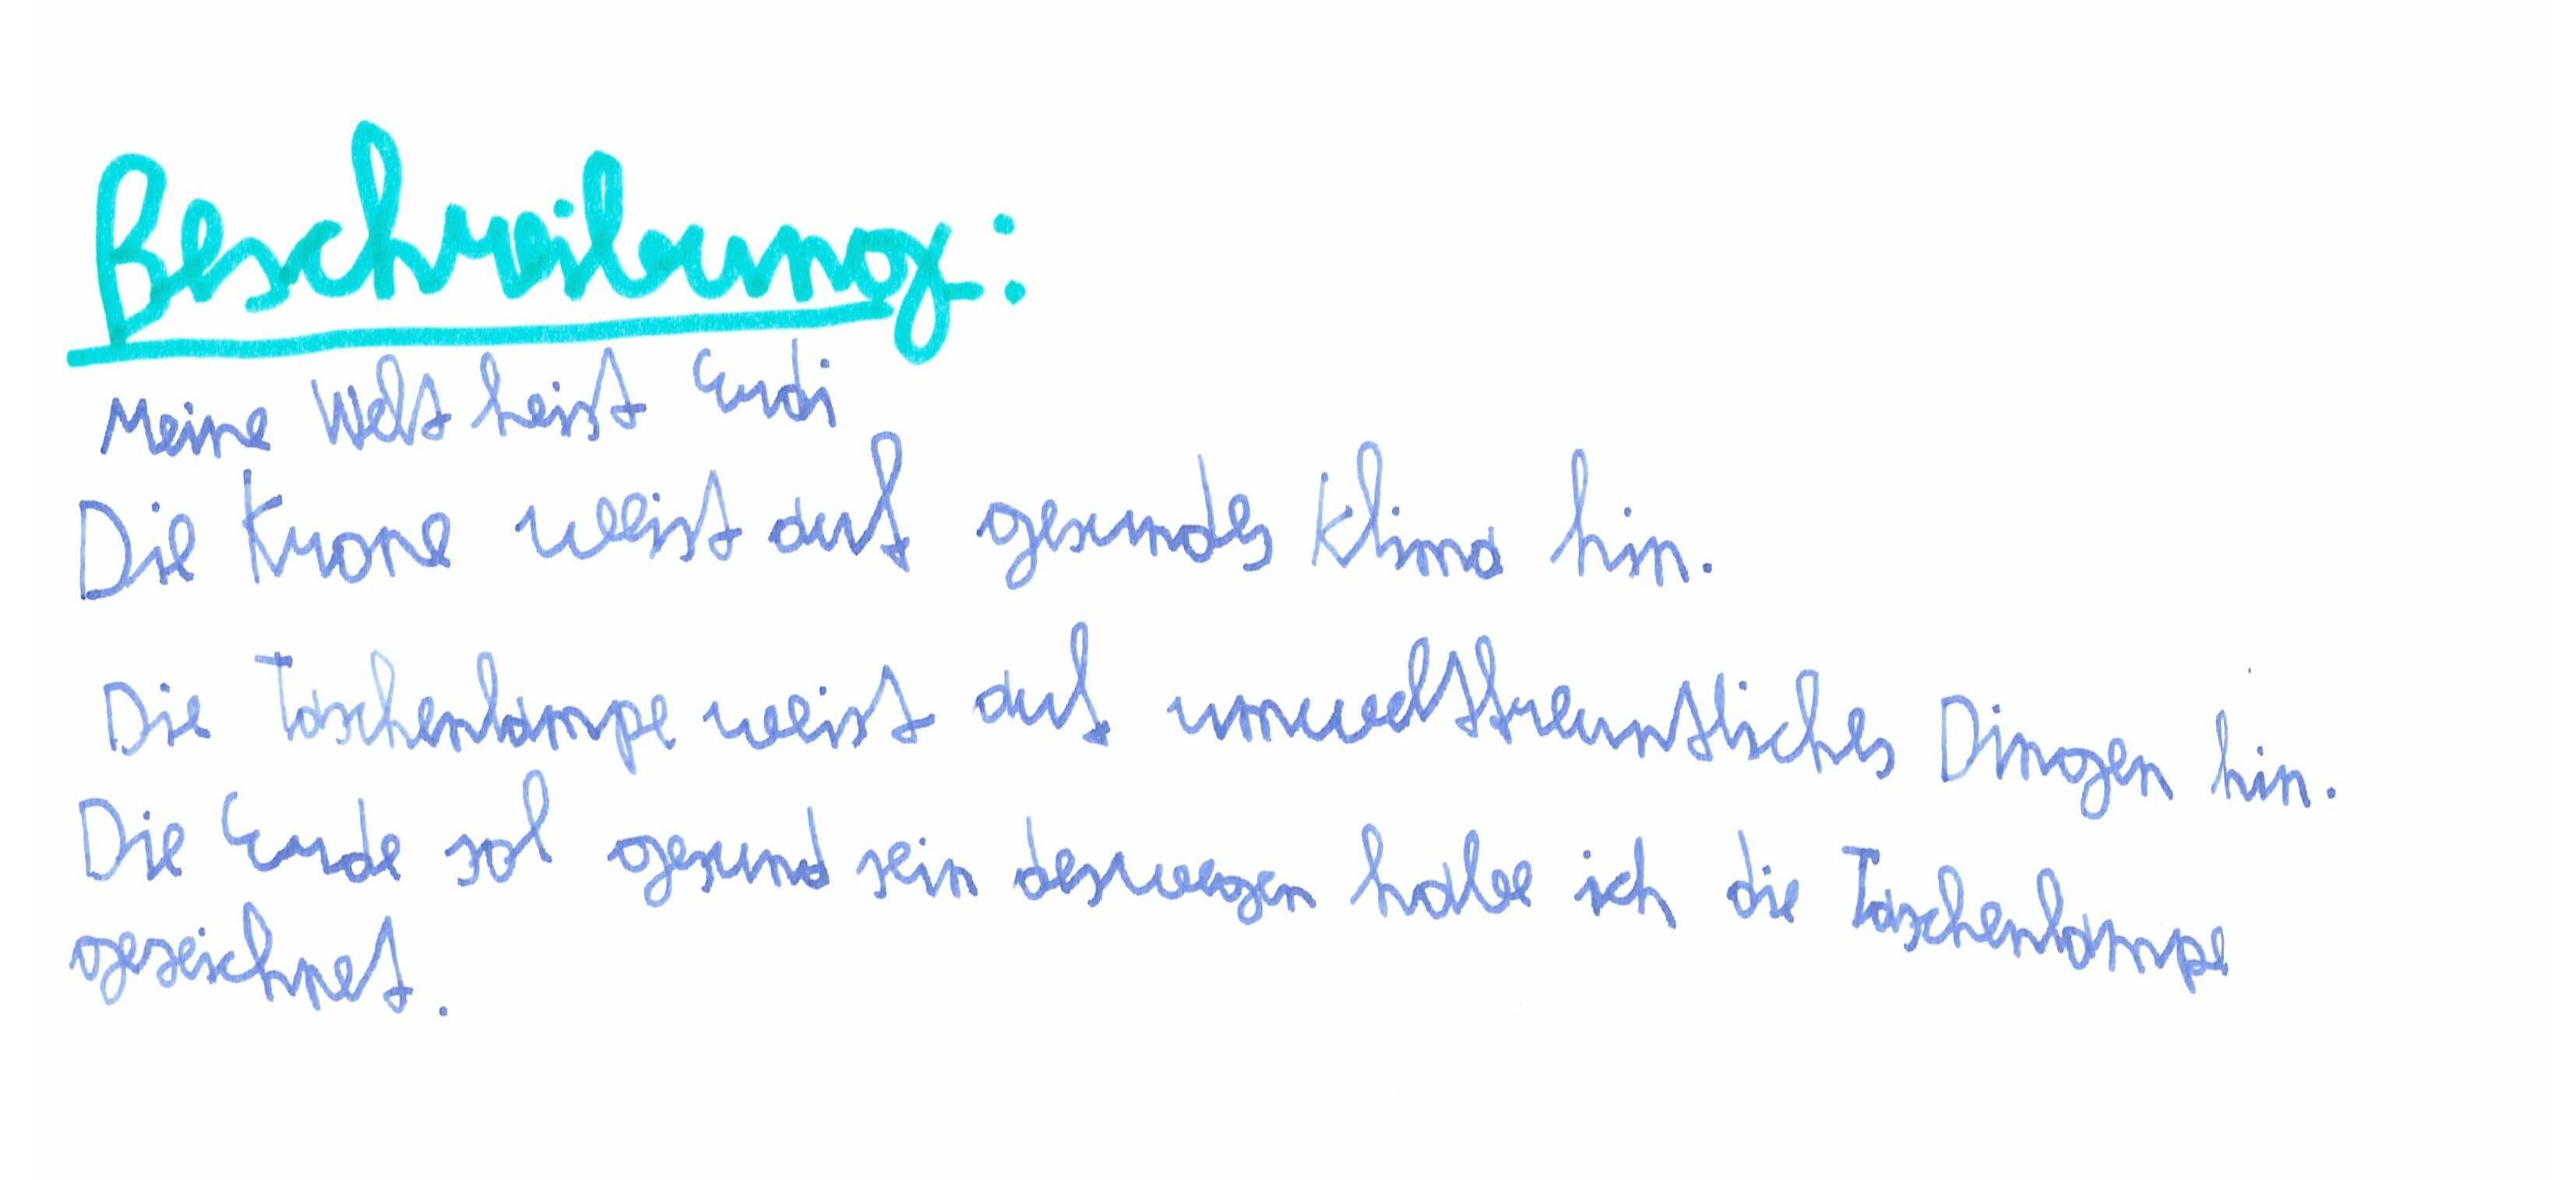 Beschreibung:
Meine Welt heist Erdi
Die Krone weist auf gesundes Klima hin.
Die Taschenlampe weist auf umweltfreuntliches Dingen hin.
Die Erde sol gesund sein deswegen habe ich die Taschenlampe
gezeichnet.